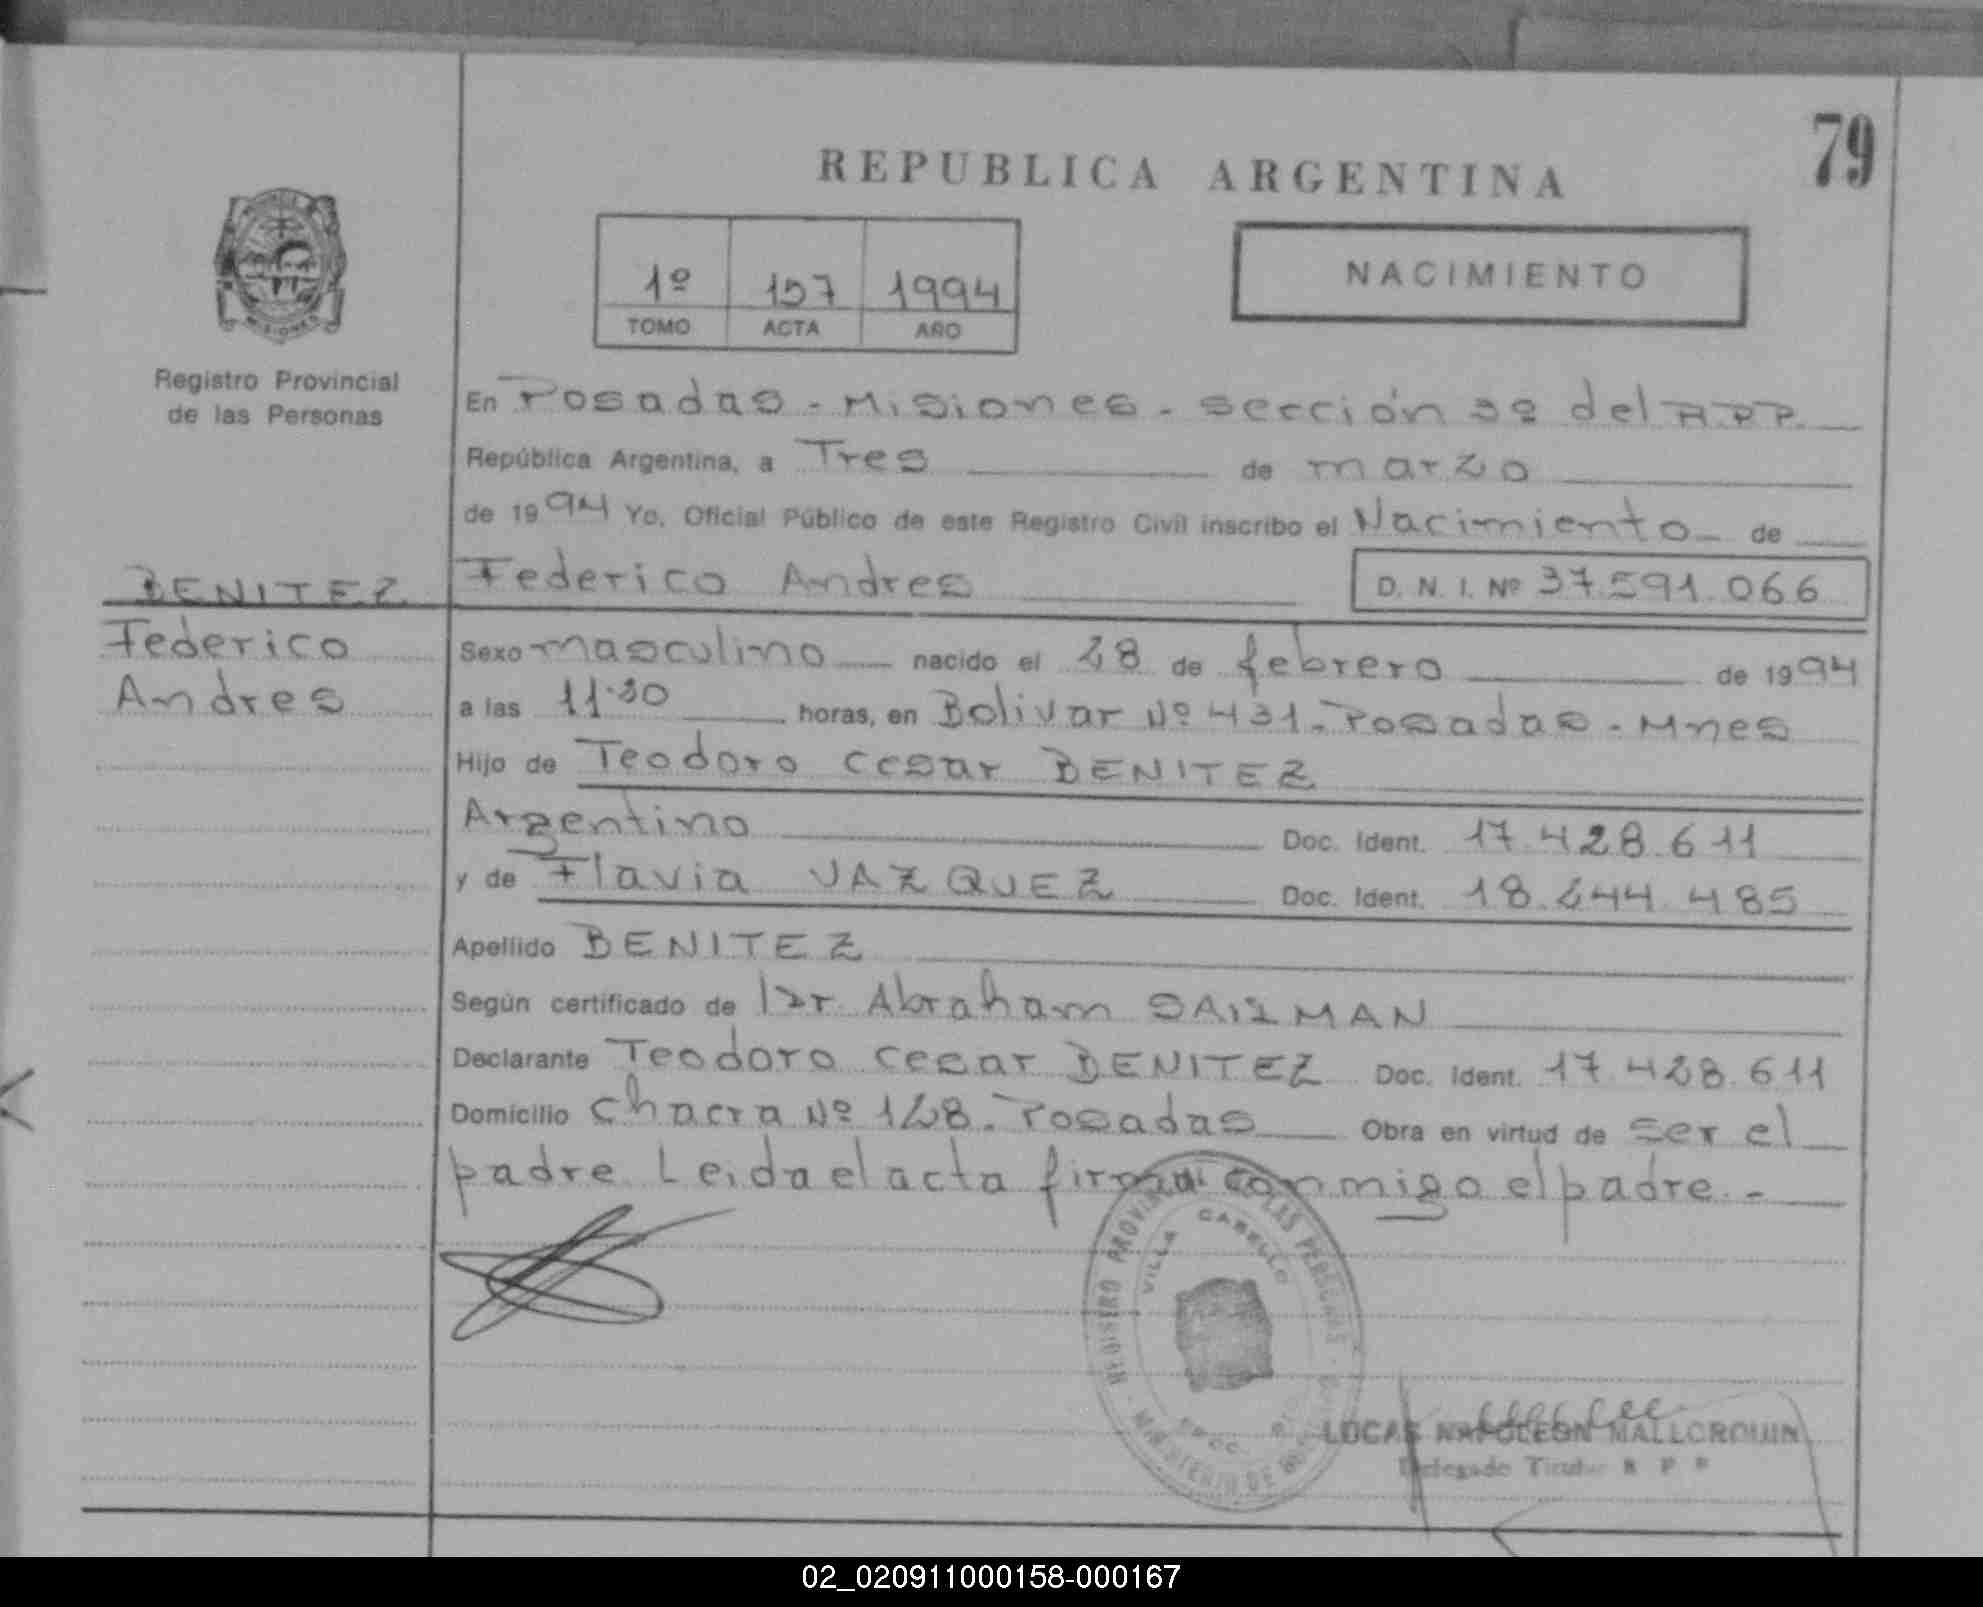 79
REPUBLICA ARGENTINA
1º 157 1994
TOMO ACTA AÑO
NACIMIENTO
MISIONES
Registro Provincial
de las Personas
En Posadas - Misiones - sección 3º del R.P.P.
República Argentina, a Tres de marzo
de 1994 Yo, Oficial Público de este Registro Civil inscribo el Nacimiento de
BENITEZ
Federico Andres D. N. I. Nº 37.591.066
Federico
Andres
Sexo masculino nacido el 28 de febrero de 1994
a las 11·30 horas, en Bolivar Nº 431 - Posadas - Mnes
Hijo de Teodoro Cesar BENITEZ
Argentino Doc. Ident. 17.428.611
y de Flavia VAZQUEZ Doc. Ident. 18.244.485
Apellido BENITEZ
Según certificado de Dr. Abraham
Declarante Teodoro Cesar BENITEZ Doc. Ident. 17.428.611
Domicilio Chacra Nº 128 - Posadas Obra en virtud de ser el
padre. Leida el acta firma conmigo el padre. -
REGISTRO PROVINCIAL DE LAS PERSONAS
VILLA CABELLO
MINISTERIO DE
LUCAS NAPOLEON MALLORQUIN
Delegado Titular R P P
02_020911000158-000167